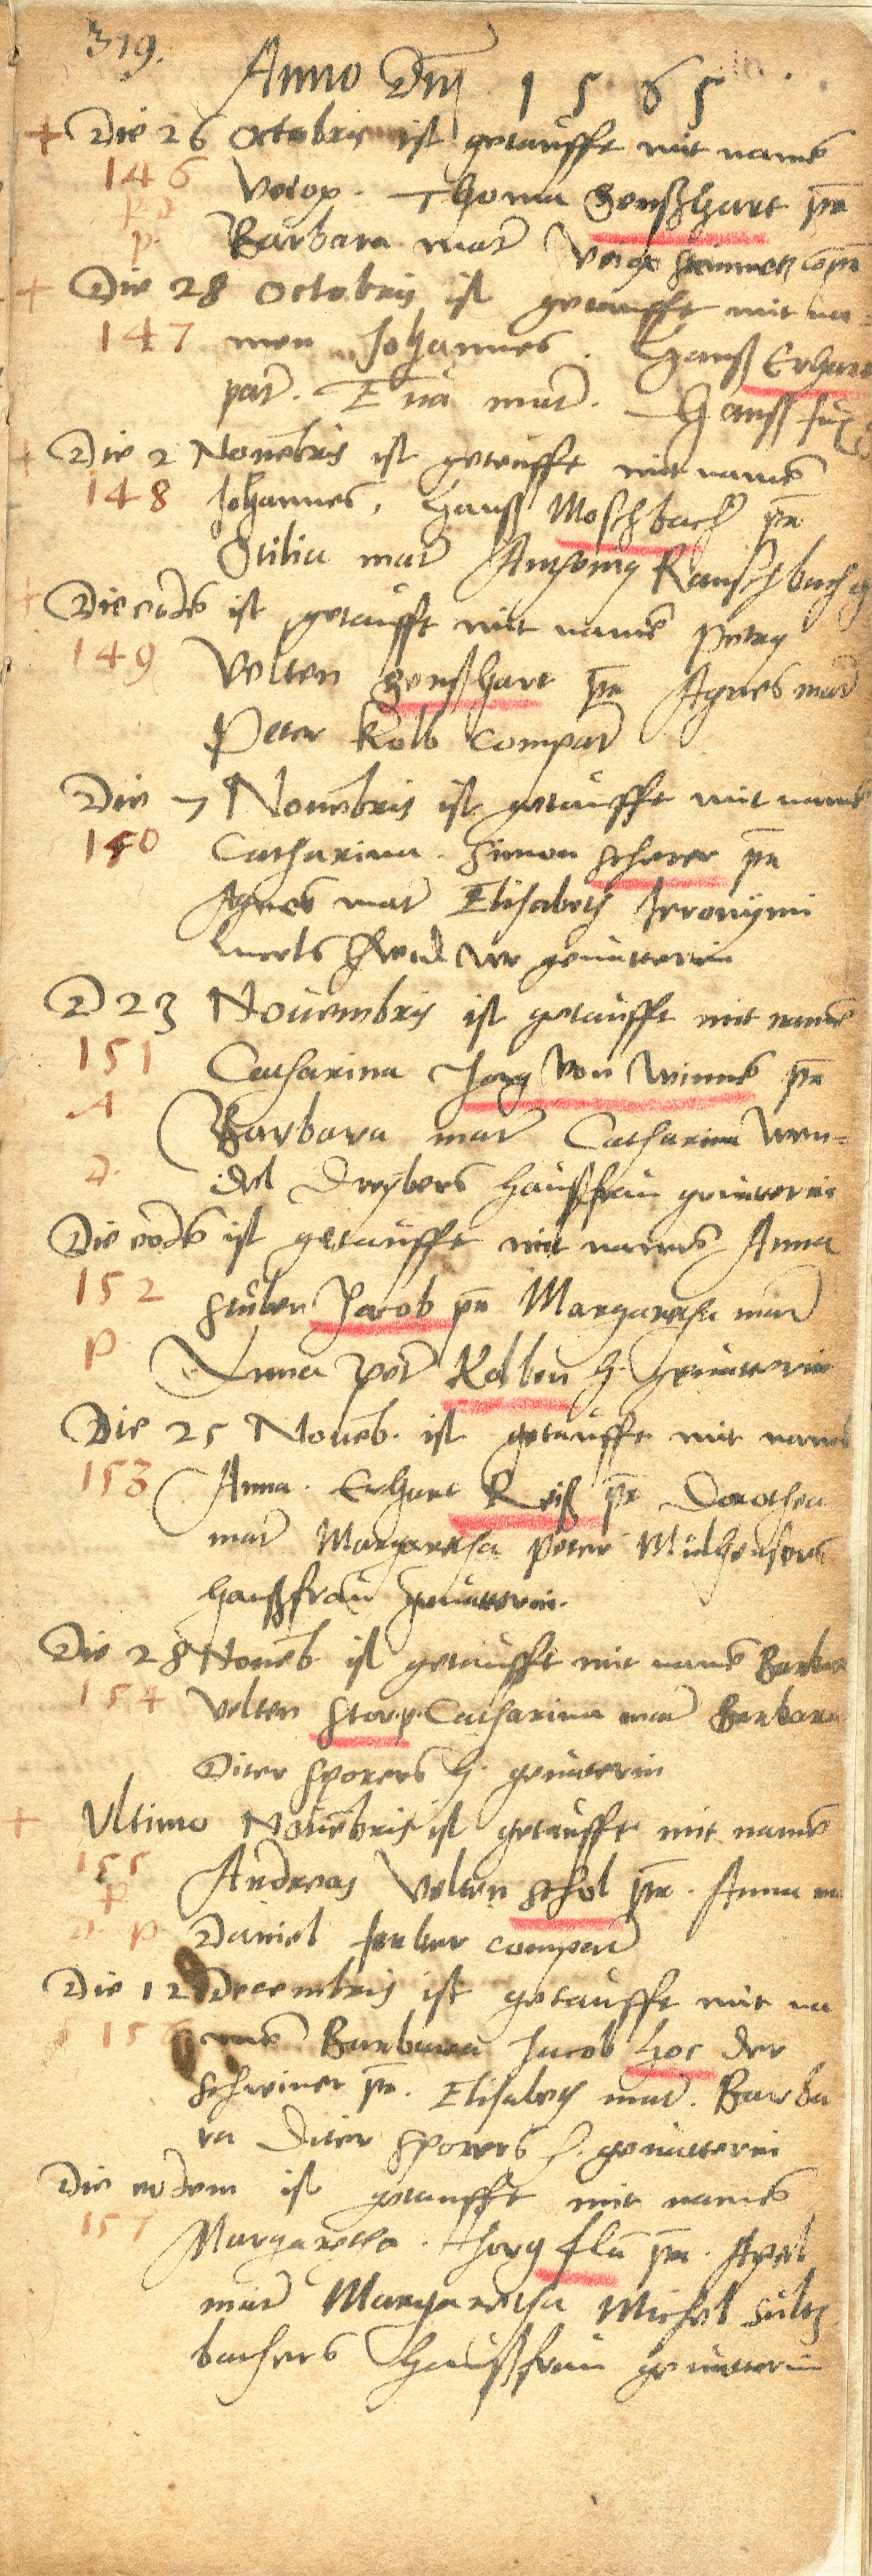 319.
Anno Dnj 1 5 6 5
+ Die 26 Octobris ist getaufft mit namē
146 Veiox. Thoma Henßhart pr
p. Barbara matr Veiox Steinmetz comp
+ Die 28 Octobris ist getaufft mit na-
147 men Johannes. Hanß Erhart
patr. Eua matr. Hanß fux
+ Die 2 Nouēbris ist getaufft mit namē
148 Johannes, Hanß Moschbach pr
Otilia matr Anthony Rauschbach g
+ Die eodē ist getaufft mit namē Petry
149 Velten Henßhart pr Agnes matr
Peter Kolb compatr
Die 7 Nouēbris ist getaufft mit namē
150 Catharina. Simon scherer pr
Agnes matr Elisabeth Jeronymi
geuatterin
D 23 Nouembris ist getaufft mit namē
151 Catharina Jorg von Winnē pr
A Barbara matr Catharina Wen-
d. del Dreybers haußfrau geuatterin
Die eodē ist getaufft mit namen Anna
152 Stuber Jacob pr Margaretha matr
p Anna Petr Kolben h. geuatterin
Die 25 Nouēb. ist getaufft mit namē
153 Anna. Erhart Reiß pr Dorothea
matr Margaretha Peter Mülheusers
haußfrau geuatterin.
Die 28 Nouēb ist getaufft mit namē Barbar
154 Velten Stor. p. Catharina matr Barbara
Diter Sporers h. geuatterin
+ Vltimo Nouēbris ist getaufft mit namē
155 Andreas Velten schol pr. Anna m
p Daniel ferber compatr
Die 12 Decembris ist getaufft mit na
156 mē Barbara Jacob Hoc der
schreiner pr. Elisabeth matr. Barba
ra Diter Sporers h. geuatterin
Die eodem ist getaufft mit namē
157 Margaretha. Jorg flū pr. Apel
matr Margaretha Michel Sultz
bachers haußfrau geuatterin